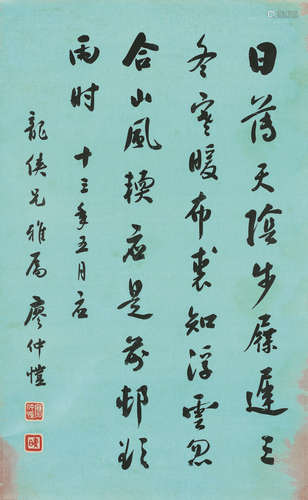 日薄天陰步屧遲三
冬寒暖布裘知浮雲忽
合山風換應是前邨欲
雨时 十三年五月应
龍俠兄雅属 廖仲愷